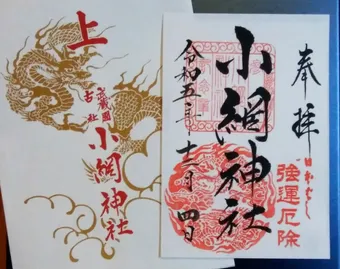 奉拝
強運厄除
小網神社
令和五年十二月四日
上
武蔵国
古社
小網神社